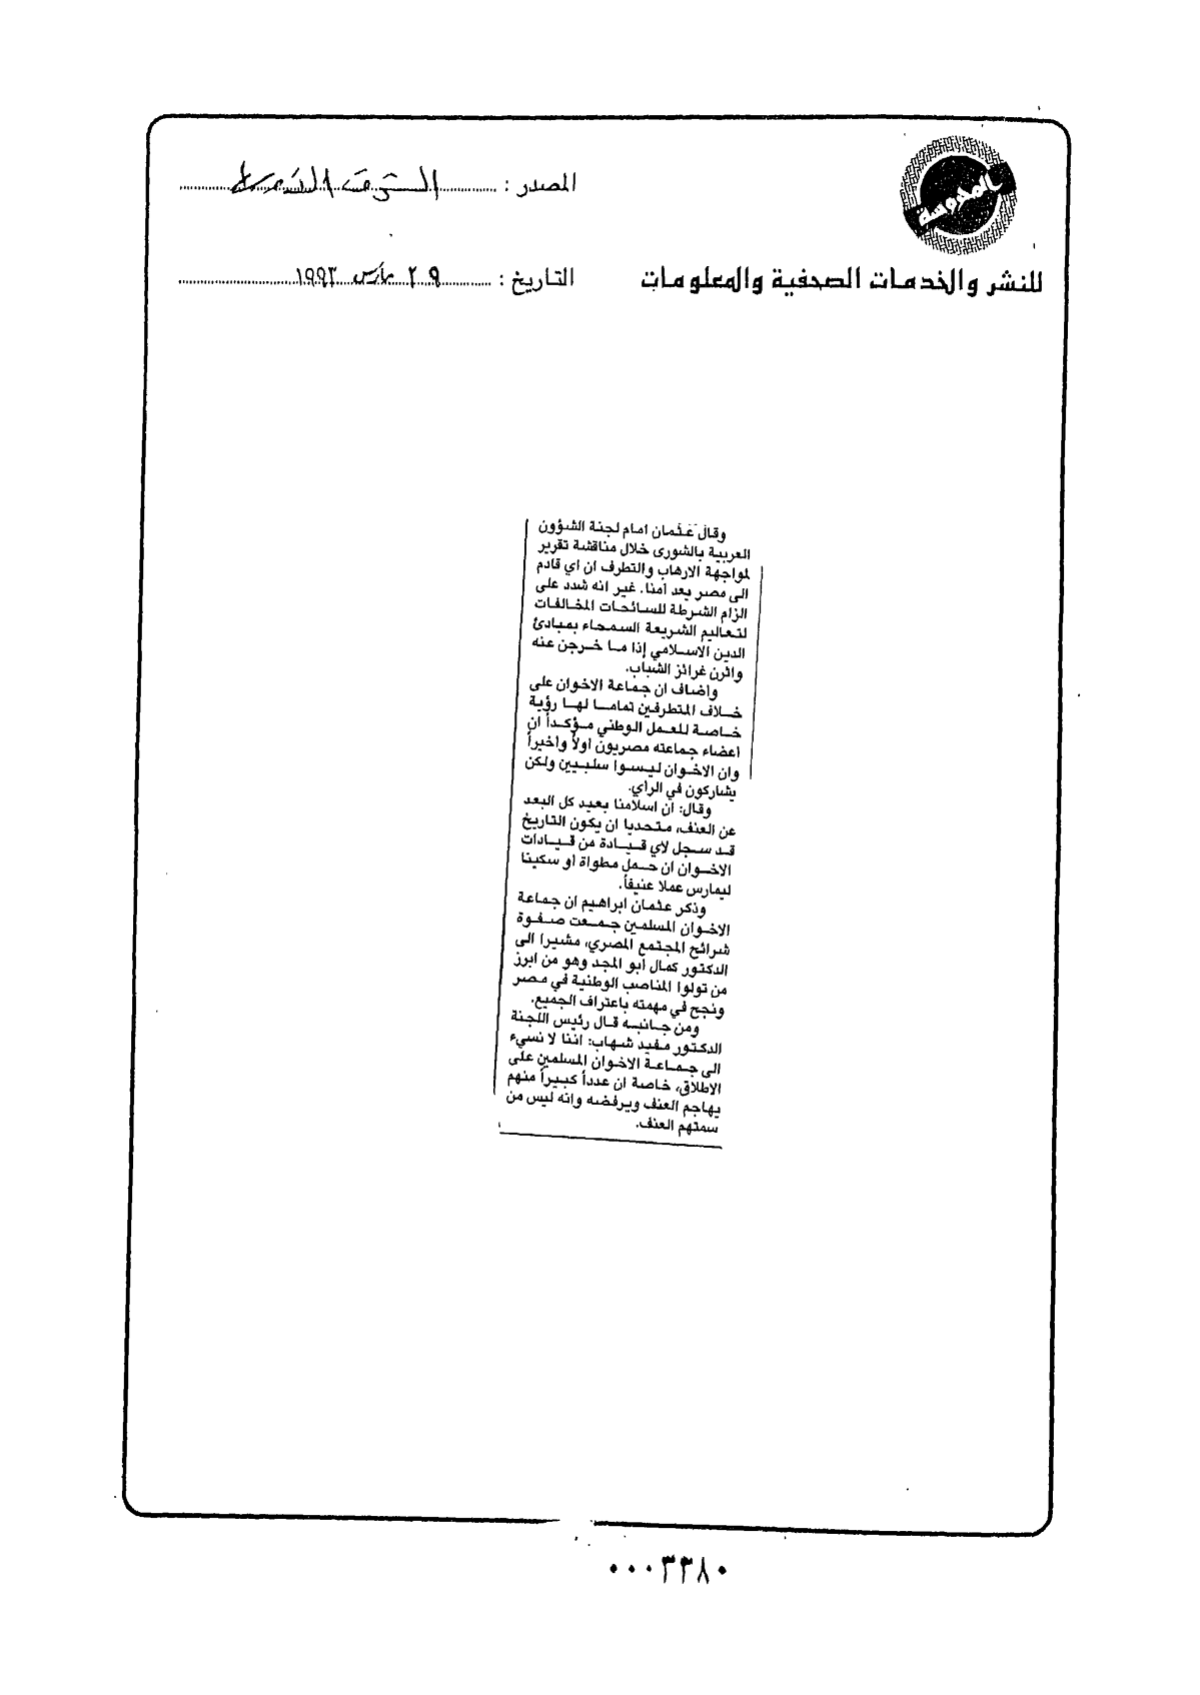 المحروسة
المصدر : الشرق الأوسط
للنشر والخدمات الصحفية والمعلومات
التاريخ : ٢٩ مارس ١٩٩٣
وقال عثمان امام لجنة الشؤون
العربية بالشورى خلال مناقشة تقرير
لمواجهة الارهاب والتطرف ان اي قادم
الى مصر يعد آمنا. غير انه شدد على
الزام الشرطة للسائحات المخالفات
لتعاليم الشريعة السمحاء بمبادئ
الدين الاسلامي إذا ما خرجن عنه
واثرن غرائز الشباب.
واضاف ان جماعة الاخوان على
خلاف المتطرفين تماما لها رؤية
خاصة للعمل الوطني مؤكداً ان
اعضاء جماعته مصريون اولاً واخيراً
وان الاخوان ليسوا سلبيين ولكن
يشاركون في الراي.
وقال: ان اسلامنا بعيد كل البعد
عن العنف، متحديا ان يكون التاريخ
قد سجل لاي قيادة من قيادات
الاخوان ان حمل مطواة او سكينا
ليمارس عملا عنيفاً.
وذكر عثمان ابراهيم ان جماعة
الاخوان المسلمين جمعت صفوة
شرائح المجتمع المصري، مشيرا الى
الدكتور كمال أبو المجد وهو من ابرز
من تولوا المناصب الوطنية في مصر
ونجح في مهمته باعتراف الجميع.
ومن جانبه قال رئيس اللجنة
الدكتور مفيد شهاب: اننا لا نسيء
الى جماعة الاخوان المسلمين على
الاطلاق، خاصة ان عدداً كبيراً منهم
يهاجم العنف ويرفضه وانه ليس من
سمتهم العنف.
٠٠٠٣٣٨٠